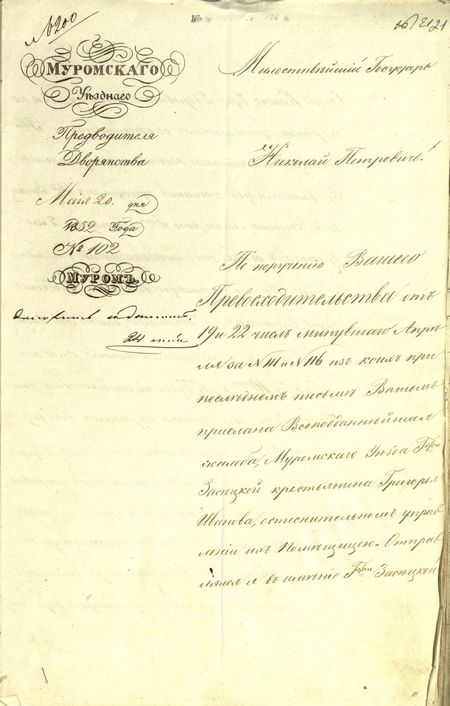 № 200
121
МУРОМСКАГО
Уѣзднаго
Предводителя
Дворянства
Маія 20. дня
1852 Года
№ 102
МУРОМЪ.
24 маія
Милостивѣйшій Государь
Николай Петровичь!
По порученію Вашего
Превосходительства отъ
19 и 22 числъ минувшаго Апрѣ
ля за № 111 и № 116 изъ коихъ при
послѣднемъ письмѣ Вашемъ
прислана Всеподданнѣйшая
жалоба, Муромскаго Уѣзда Гжи
Засѣцкой крестьянина Григорья
Шапова, о стеснительномъ управ
леніи ихъ Помѣщицею. Отправ
лялся я въ имѣніе Гжи Засѣцкой